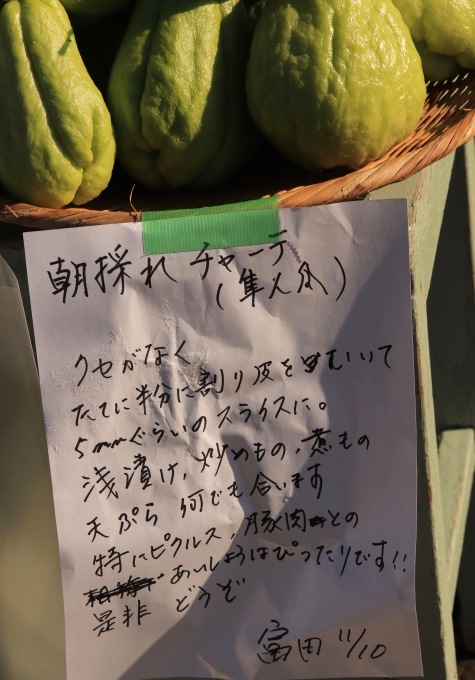 朝採れ チャーテ
(隼人瓜)
クセがなく
たてに半分に割り皮をむいて
5mmぐらいのスライスに。
浅漬け, 炒めもの, 煮もの
天ぷら 何でも合います
特にピクルス, 豚肉との
あいしょうはぴったりです!!
是非 どうぞ
富田 11/10